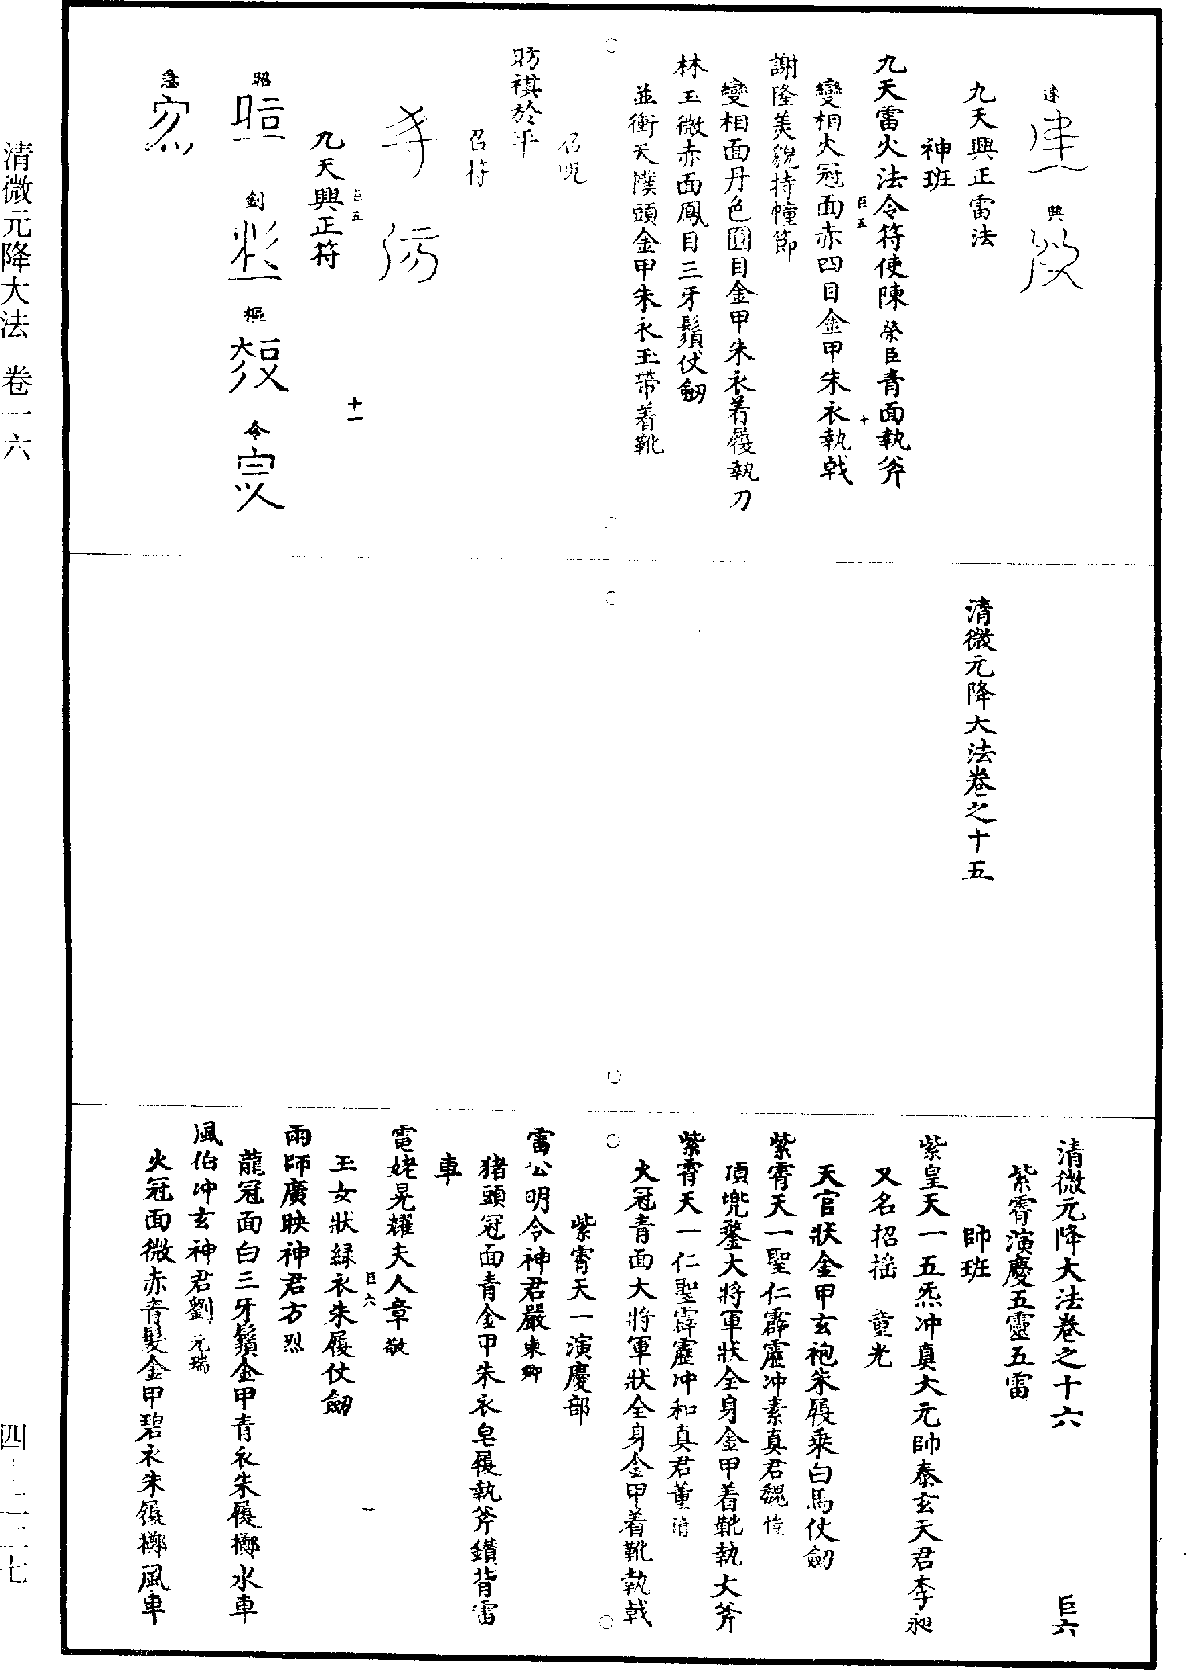 速
興
九天興正雷法
神班
九天雷火法令符使陳榮臣青面執斧
變相火冠面赤四目金甲朱衣執戟
謝隆美貌持幢節
變相面丹色圓目金甲朱衣着履執刀
林玉微赤面鳳目三牙鬚仗劒
並衝天幞頭金甲朱衣玉帶着靴
召呪
昉祺於平
召符
九天興正符
巨五
十
巨五
十一
昭
劍
樞
令
急
清微元降大法卷之十五
清微元降大法卷之十六
巨六
紫霄演慶五靈五雷
帥班
紫皇天一五炁冲真大元帥泰玄天君李昶
又名招摇 童光
天官狀金甲玄袍朱履乘白馬仗劒
紫霄天一聖仁霹靂冲素真君魏偉
頂兜鍪大將軍狀全身金甲着靴執大斧
紫霄天一仁聖霹靂冲和真君董清
大冠青面大將軍狀全身金甲着靴執戟
紫霄天一演慶部
雷公明令神君嚴東卿
猪頭冠面青金甲朱衣皂履執斧鑽背雷
車
電姥晃耀夫人章敬
玉女狀緑衣朱履仗劒
巨六
一
雨師廣映神君方烈
龍冠面白三牙鬚金甲青衣朱履擲水車
風伯冲玄神君劉元瑞
火冠面微赤青髮金甲碧衣朱履擲風車
清微元降大法 卷一六